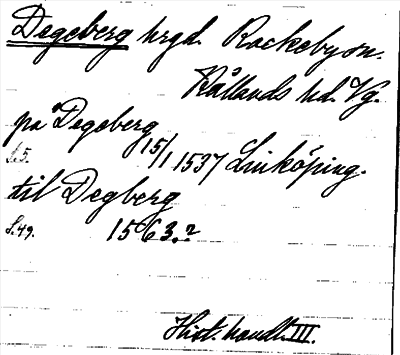 Degeberg hrgd. Rackeby sn.
Kållands hd. Vg.
på Degeberg
S. 5. 15/1 1537 Linköping.
til Degberg
S. 49. 1563.?
Hist. handl. III.